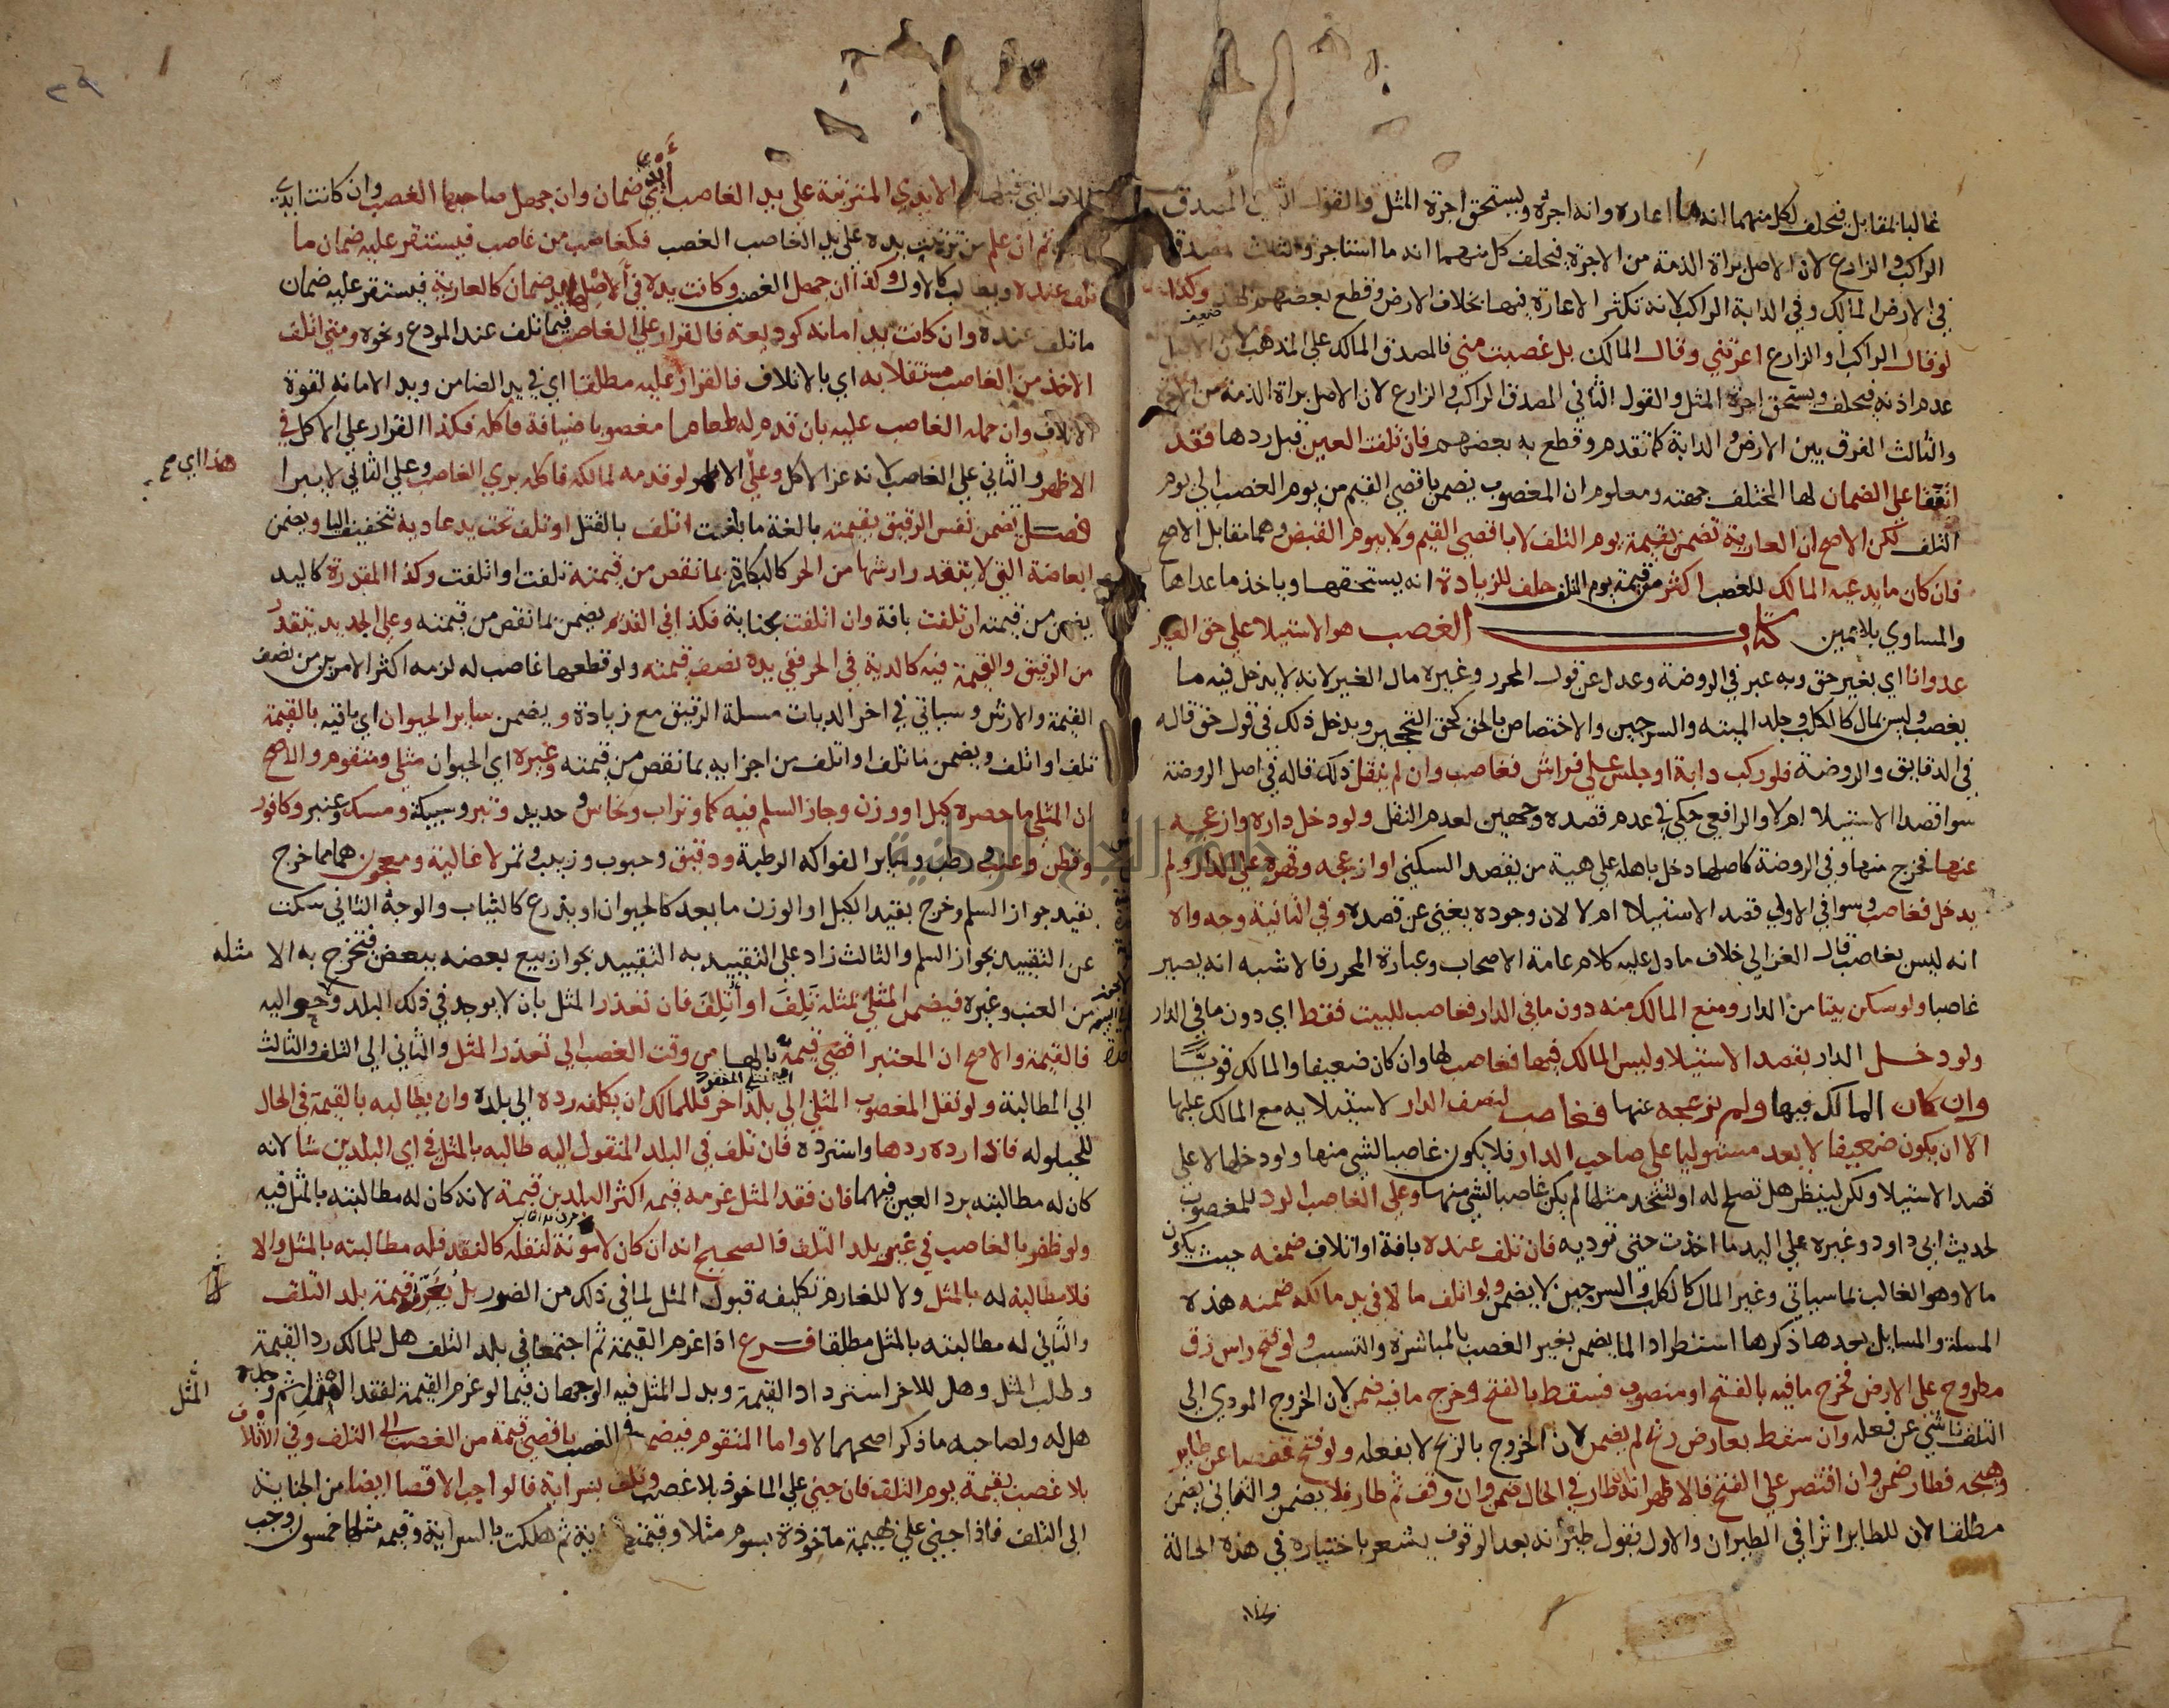 غالبا بمقابل فيحلف لكل منهما انه ما اعاره وانه اجره ويستحق اجرة المثل والقول المصدق
الراكب والزارع لان الاصل براة الذمة من الاجرة فيحلف كل منهما انه ما استاجر والثالث المصدق
في الارض المالك وفي الدابة الراكب لانه تكثر الاعارة فيها بخلاف الارض وقطع بعضهم وكذا
لو قال الراكب او الزارع اعرتني وقال المالك بل غصبت مني فالمصدق المالك علي المذهب لان الاصل
عدم اذنه فيحلف ويستحق اجرة المثل والقول الثاني المصدق الراكب والزارع لان الاصل براة الذمة من
والثالث الفرق بين الارض والدابة كما تقدم وقطع به بعضهم فان تلفت العين قبل ردها فقد
اتفقا علي الضمان لها المختلف جهته ومعلوم ان المغصوب يضمن باقصي القيم من يوم الغصب الي يوم
التلف لكن الاصح ان العارية تضمن بقيمة يوم التلف لا باقصي القيم ولا بيوم القبض وهما مقابل الاصح
فان كان ما يدعيه المالك للغصب اكثر من قيمة يوم التلف حلف للزيادة انه يستحقها وياخذ ما عداها
والمساوي بلا يمين كتاب الغصب هو الاستيلا علي حق الغير
عدوانا اي بغير حق وبه عبر في الروضة وعدل عن قول المحرر وغيره مال الغير لانه لا يدخل فيه ما
يغصب وليس بمال كالكلب وجلد الميته والسرجين والاختصاص بالحق كحق التحجير ويدخل ذلك في قول حق قاله
في الدقايق والروضة فلو ركب دابة او جلس علي فراش فغاصب وان لم ينقل ذلك قاله في اصل الروضة
سوا قصد الاستيلا ام لا والرافعي حكي في عدم قصده وجهين لعدم النقل ولو دخل داره وازعجه
عنها فخرج منها وفي الروضة كاصلها دخل باهله علي هية من يقصد السكني او ازعجه وقهره علي الدار ولم
يدخل فغاصب وسوا في الاولي قصد الاستيلا ام لا لان وجوده يغني عن قصده وفي الثانية وجه واه
انه ليس بغاصب قال الغزالي خلاف ما دل عليه كلام عامة الاصحاب وعبارة المحرر فالاشبه انه يصير
غاصبا ولو سكن بيتا من الدار ومنع المالك منه دون ما في الدار فغاصب للبيت فقط اي دون ما في الدار
ولو دخل الدار بقصد الاستيلا وليس المالك فيها فغاصب لها وان كان ضعيفا والمالك قويا
وان كان المالك فيها ولم يزعجه عنها فغاصب لنصف الدار لاستيلايه مع المالك عليها
الا ان يكون ضعيفا لا يعد مستوليا علي صاحب الدار فلا يكون غاصبا لشي منها ولو دخلها لا علي
قصد الاستيلا ولكن لينظر هل تصلح له او لتتخذ مثلها لم يكن غاصبا لشي منها وعلي الغاصب الرد للمغصوب
لحديث ابي داود وغيره علي اليد ما اخذت حتي توديه فان تلف عنده بافة او اتلاف ضمنه حيث يكون
مالا وهو الغالب بما سياتي وغير المال كالكلب والسرجين لا يضمن ولو اتلف مالا في يد مالكه ضمنه هذه
المسلة والمسايل بعدها ذكرها استطرادا لما يضمن بغير الغصب بالمباشرة والتسبب ولو فتح راس زق
مطروح علي الارض فخرج ما فيه بالفتح او منصوب فسقط بالفتح وخرج ما فيه ضمن لان الخروج المودي الي
التلف ناشي عن فعله وان سقط بعارض ريح لم يضمن لان الخروج بالريح لا بفعله ولو فتح قفصا عن طاير
وهيجه فطار ضمن وان اقتصر علي الفتح فالاظهر انه ان طار في الحال ضمن وان وقف ثم طار فلا يضمن والثاني يضمن
مطلقا لان للطاير اثرا في الطيران والاول يقول طيرانه بعد الوقوف يشعر باختياره في هذه الحالة
الايدي المترتبة علي يد الغاصب ايدي ضمان وان جهل صاحبها الغصب وان كانت ايدي
ثم ان علم من ترتبت يده علي يد الغاصب الغصب فكغاصب من غاصب فيستقر عليه ضمان ما
تلف عنده ويطالب كالاول وكذا ان جهل الغصب وكانت يده في الاصل يد ضمان كالعارية فيستقر عليه ضمان
ما تلف عنده وان كانت يد امانة كوديعة فالقرار علي الغاصب فيما تلف عند المودع ونحوه ومتي اتلف
الاخذ من الغاصب مستقلا به اي بالاتلاف فالقرار عليه مطلقا اي في يد الضامن ويد الامانه لقوة
الاتلاف وان حمله الغاصب عليه بان قدم له طعاما مغصوبا ضيافة فاكله فكذا القرار علي الاكل في
الاظهر والثاني علي الغاصب لانه غر الاكل وعلي الاظهر لو قدمه لمالكه فاكله بري الغاصب وعلي الثاني لا يبرا
هذا اي
فصل تضمن نفس الرقيق بقيمته بالغة ما بلغت اتلف بالقتل او تلف تحت يد عادية بتخفيف اليا ويضمن
ابعاضه التي لا يتقدر ارشها من الحر كالبكارة بما نقص من قيمته تلفت او اتلفت وكذا المقدرة كاليد
يضمن من قيمته ان تلفت بافة وان اتلفت بجناية فكذا في القديم يضمن بما نقص من قيمته وعلي الجديد يتقدر
من الرقيق والقيمة فيه كالدية في الحر ففي يده نصف قيمته ولو قطعها غاصب له لزمه اكثر الامرين من نصف
القيمة والارش وسياتي في اخر الديات مسلة الرقيق مع زيادة ويضمن ساير الحيوان اي باقيه بالقيمة
تلف او اتلف ويضمن ما تلف او اتلف من اجزايه بما نقص من قيمته وغيره اي الحيوان مثلي ومتقوم والاصح
ان المثلي ما حصره كيل او وزن وجاز السلم فيه كما وتراب ونحاس وحديد وتبر وسبيكة ومسك وعنبر وكافور
وقطن وعنب ورطب وساير الفواكه الرطبة ودقيق وحبوب وزبيب وتمر لا غالية ومعجون هما مما خرج
بقيد جواز السلم وخرج بقيد الكيل او الوزن ما يعد كالحيوان او يذرع كالثياب والوجه الثاني سكت
عن التقييد بجواز السلم والثالث زاد علي التقييد به التقييد بجواز بيع بعضه ببعض فتخرج به الا مثله
من العنب وغيره فيضمن المثلي بمثله تلف او اتلف فان تعذر المثل بان لا يوجد في ذلك البلد وحواليه
فالقيمة والاصح ان المعتبر اقصي قيمه بالها من وقت الغصب الي تعذر المثل والثاني الي التلف والثالث
الي المطالبة ولو نقل المغصوب المثلي الي بلد اخر فللمالك ان يكلفه رده الي بلده وان يطالبه بالقيمة في الحال
للحيلوله فاذا رده ردها واسترده فان تلف في البلد المنقول اليه طالبه بالمثل في اي البلدين شا لانه
كان له مطالبته برد العين فيهما فان فقد المثل غرمه قيمه اكثر البلدين قيمة لانه كان له مطالبته بالمثل فيه
ولو ظفر بالغاصب في غير بلد التلف فالصحيح انه ان كان لا مونة لنقله كالنقد فله مطالبته بالمثل والا
فلا مطالبة له بالمثل ولا للغارم تكليفه قبول المثل لما في ذلك من الضرر بل يغرمه قيمة بلد التلف
والثاني له مطالبته بالمثل مطلقا فرع اذا غرم القيمة ثم اجتمعا في بلد التلف هل للمالك رد القيمة
وطلب المثل وهل للاخر استرداد القيمة وبدل المثل فيه الوجهان فيما لو غرم القيمة لفقد المثل ثم وجده
المثل
هل له ولصاحبه ما ذكر اصحهما لا واما المتقوم فيضمن في الغصب باقصي قيمة من الغصب الي التلف وفي الاتلاف
بلا غصب بقيمة يوم التلف فان جني علي الماخوذ بلا غصب وتلف بسراية فالواجب الاقصا ايضا من الجناية
الي التلف فاذا جني علي بهيمة ماخوذة بسوم مثلا وقيمتها ماية ثم هلكت بالسراية وقيمة مثلها خمسون وجب